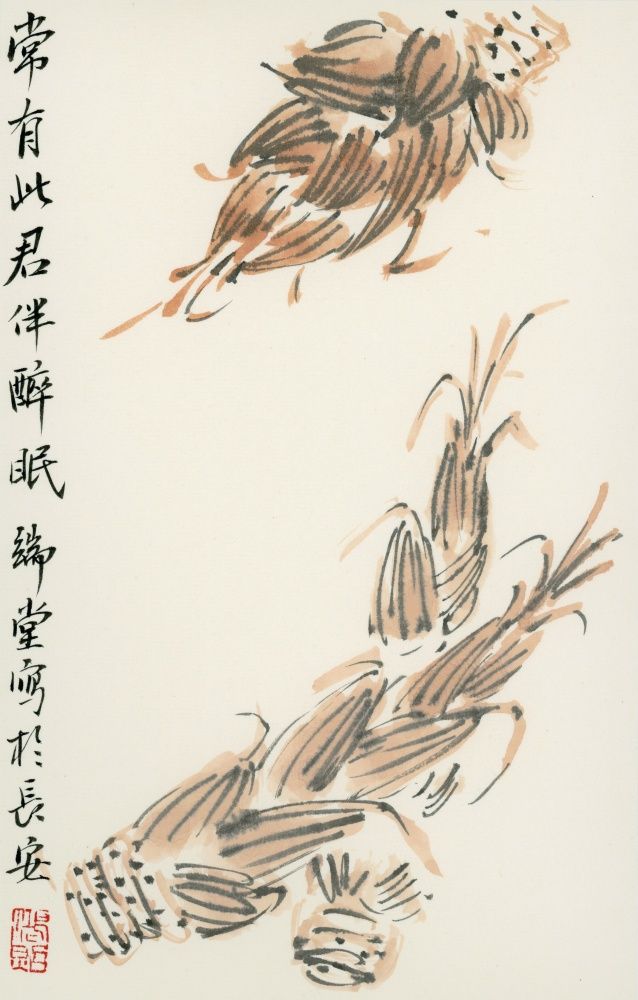 常有此君伴醉眠 端堂写於長安